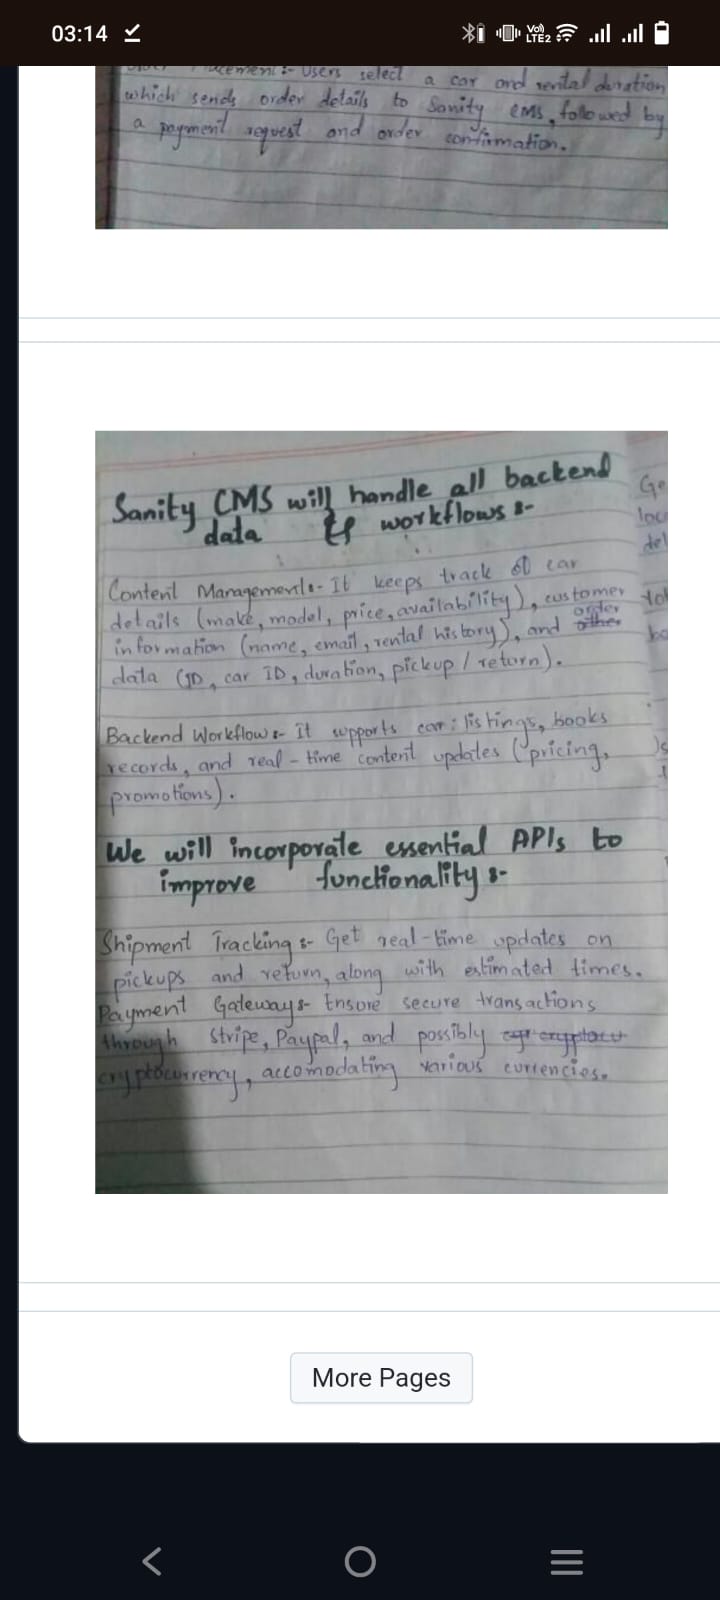 03:14
Vo) LTE2
Placement :- Users select a car and rental duration
which sends order details to Sanity CMS, followed by
a payment request and order confirmation.
Sanity CMS will handle all backend
data & workflows :-
Content Management:- It keeps track of car
details (make, model, price, availability), customer
information (name, email, rental history), and order
data (ID, car ID, duration, pickup / return).
Backend Workflow :- It supports car listings, books
records, and real-time content updates (pricing,
promotions).
We will incorporate essential APIs to
improve functionality :-
Shipment Tracking :- Get real-time updates on
pickups and return, along with estimated times.
Payment Gateways- Ensure secure transactions
through Stripe, Paypal, and possibly
cryptocurrency, accomodating various currencies.
More Pages